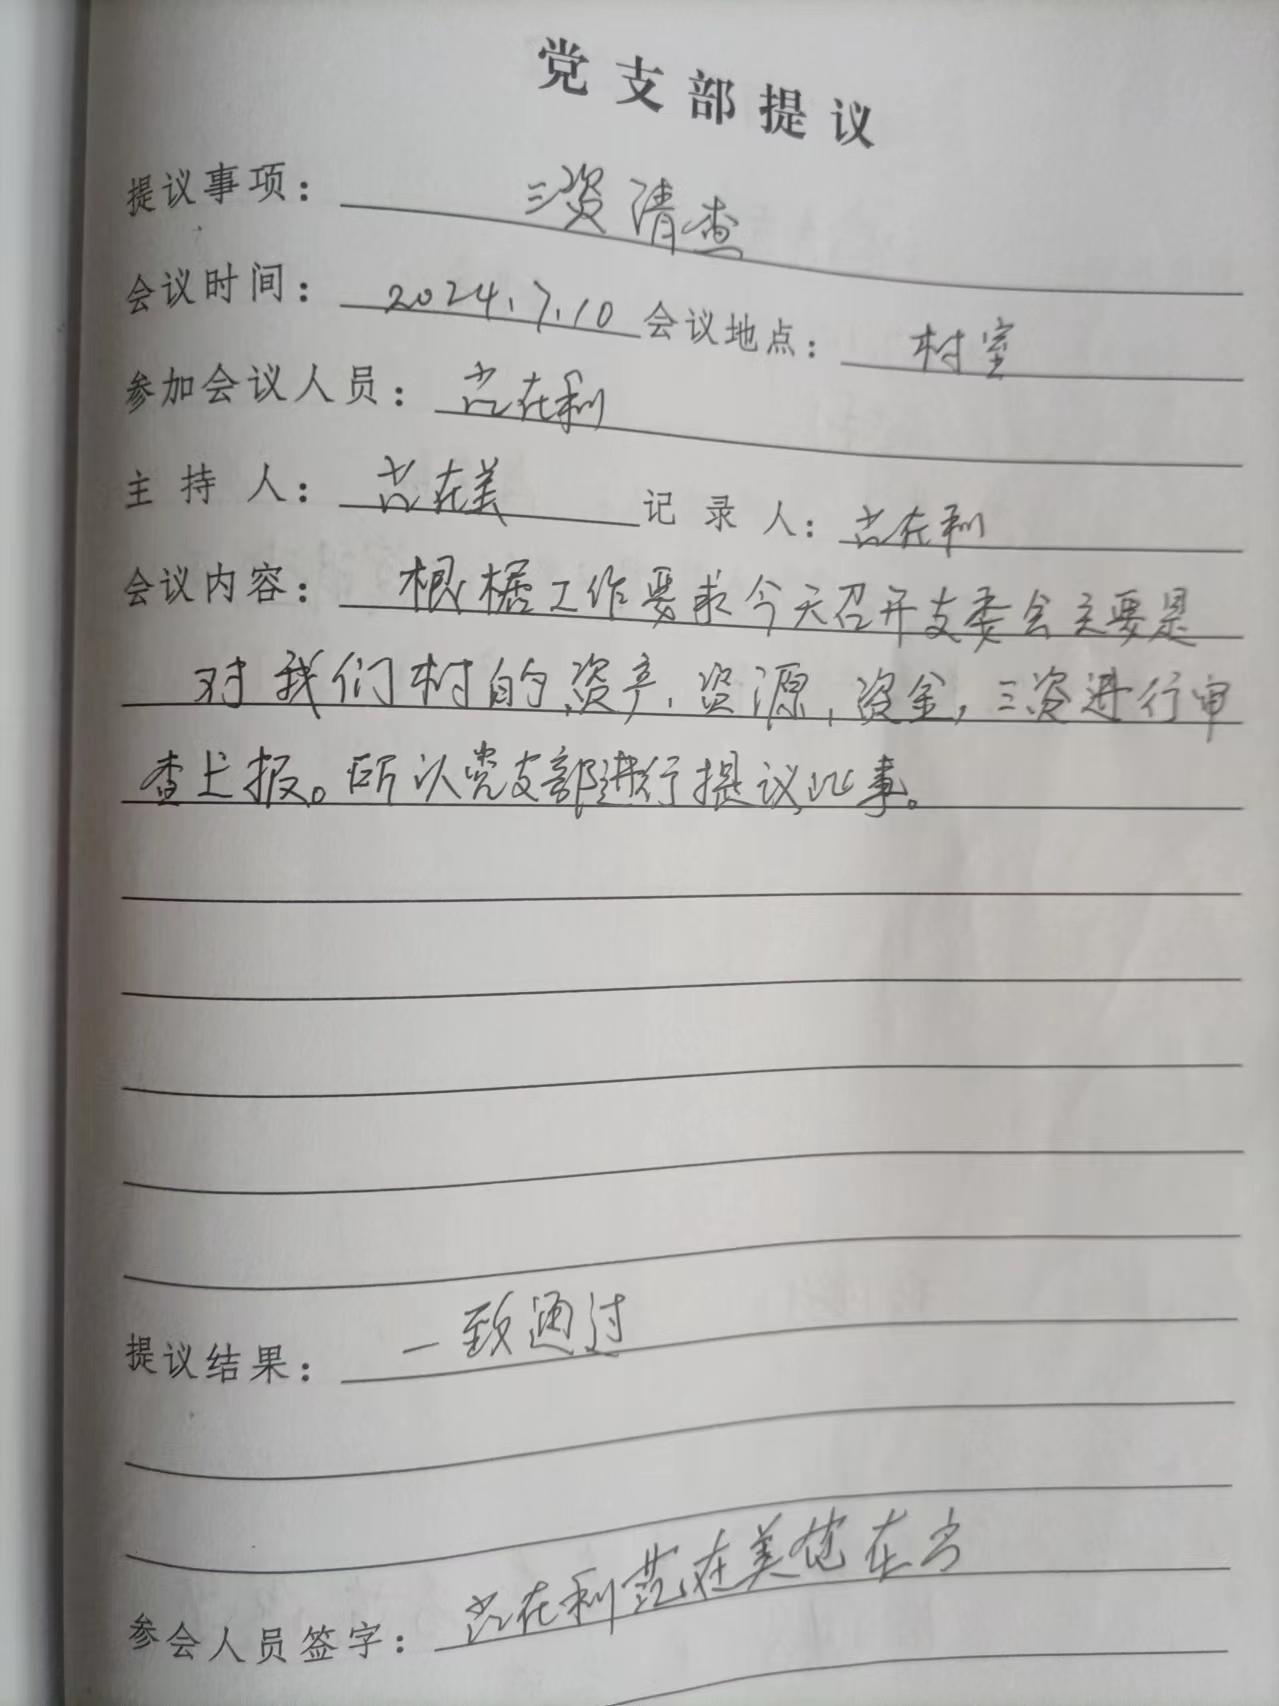 党支部提议
提议事项：三资清查
会议时间：2024.7.10 会议地点：村室
参加会议人员：在利
主持人：在美 记录人：在利
会议内容：根据工作要求今天召开支委会主要是
对我们村的资产，资源，资金，三资进行审
查上报。所以党支部进行提议此事。
提议结果：一致通过
参会人员签字：在利 在美 在